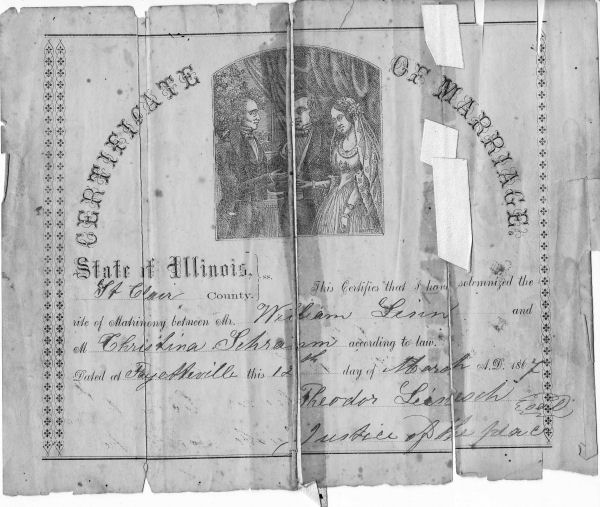 CERTIFICATE OF MARRIAGE.
State of Illinois, } ss.
St Clair County.
This Certifies that I have solemnized the
rite of Matrimony between Mr. William Linn and
M Christina Schramm according to law.
Dated at Fayetteville this 12th day of March A.D. 1867
Theodor
Justice of the peace